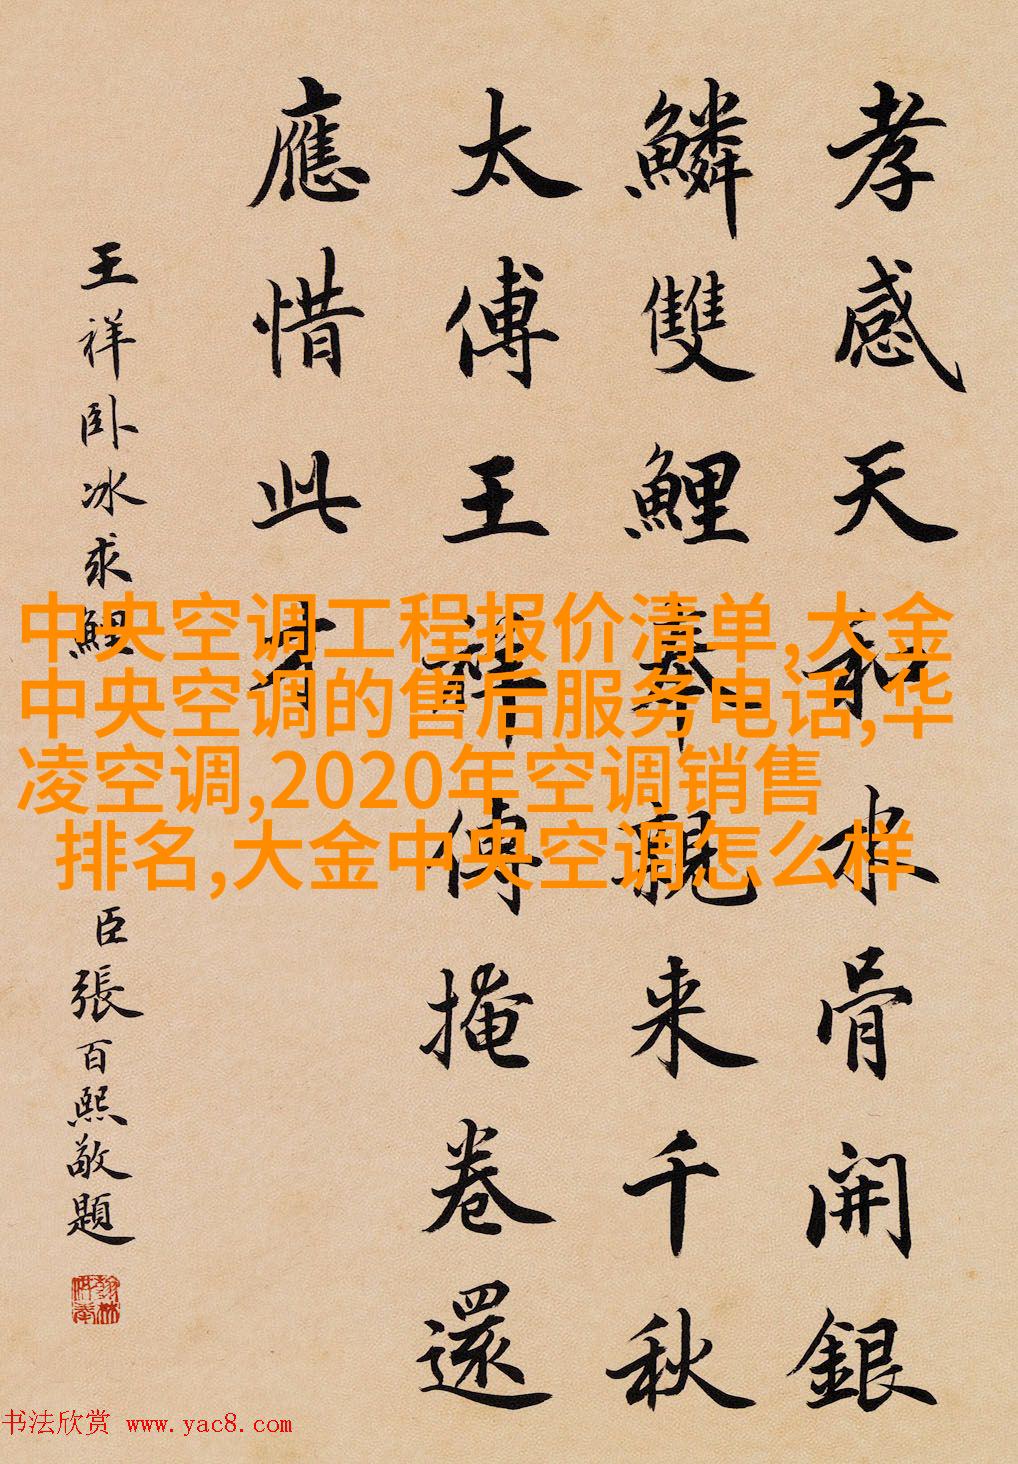 孝感天水骨開銀
鱗雙鯉奉親来千秋
太傅王祥傳掩卷還
應惜此身
王祥卧冰求鯉
臣張百熙敬題
翰林供奉
中央空调工程报价清单,大金
中央空调的售后服务电话,华
凌空调,2020年空调销售
排名,大金中央空调怎么样
书法欣赏 www.yac8.com